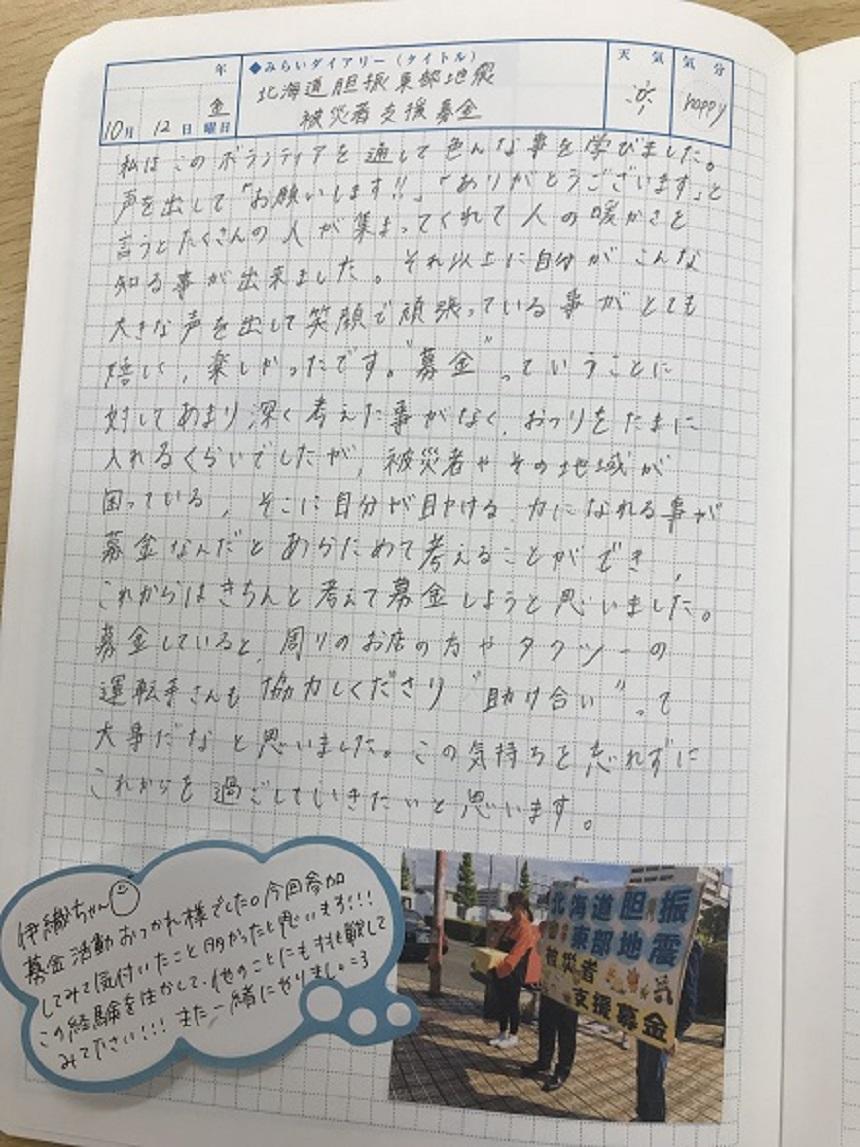 年
◆みらいダイアリー(タイトル)
天気
気分
北海道胆振東部地震
被災者支援募金
10月12日金曜日
happy
私はこのボランティアを通して色んな事を学びました。
声を出して「お願いします!!」「ありがとうございます」と
言うとたくさんの人が集まってくれて人の暖かさを
知る事が出来ました。それ以上に自分がこんな
大きな声を出して笑顔で頑張っている事がとても
嬉しく、楽しかったです。"募金"っていうことに
対してあまり深く考えた事がなく、おつりをたまに
入れるくらいでしたが、被災者やその地域が
困っている、そこに自分が助ける力になれる事が
募金なんだとあらためて考えることができ、
これからはきちんと考えて募金しようと思いました。
募金していると、周りのお店の方やタクシーの
運転手さんも協力しくださり"助け合い"って
大事だなと思いました。この気持ちを忘れずに
これからを過ごしていきたいと思います。
伊織ちゃん
募金活動おつかれ様でした。今回参加
してみて気付いたこと多かったと思います!!!
この経験を生かして、他のことにも挑戦して
みてださい!!! また一緒にやりましょう
北海道胆振
東部地震
被災者
支援募金